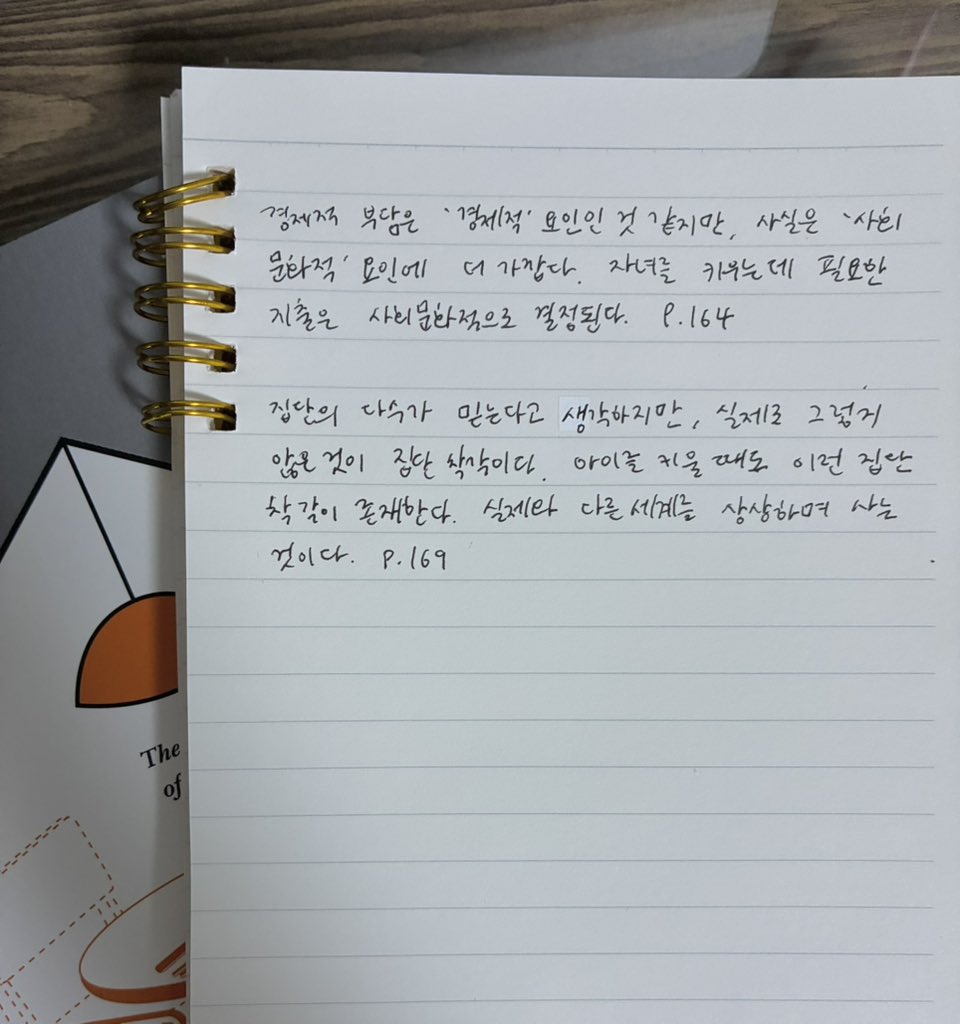 경제적 부담은 '경제적' 요인인 것 같지만, 사실은 '사회
문화적' 요인에 더 가깝다. 자녀를 키우는데 필요한
지출은 사회문화적으로 결정된다. P.164
집단의 다수가 믿는다고 생각하지만, 실제로 그렇지
않은 것이 집단 착각이다. 아이를 키울 때도 이런 집단
착각이 존재한다. 실제와 다른 세계를 상상하며 사는
것이다. P.169
The
of